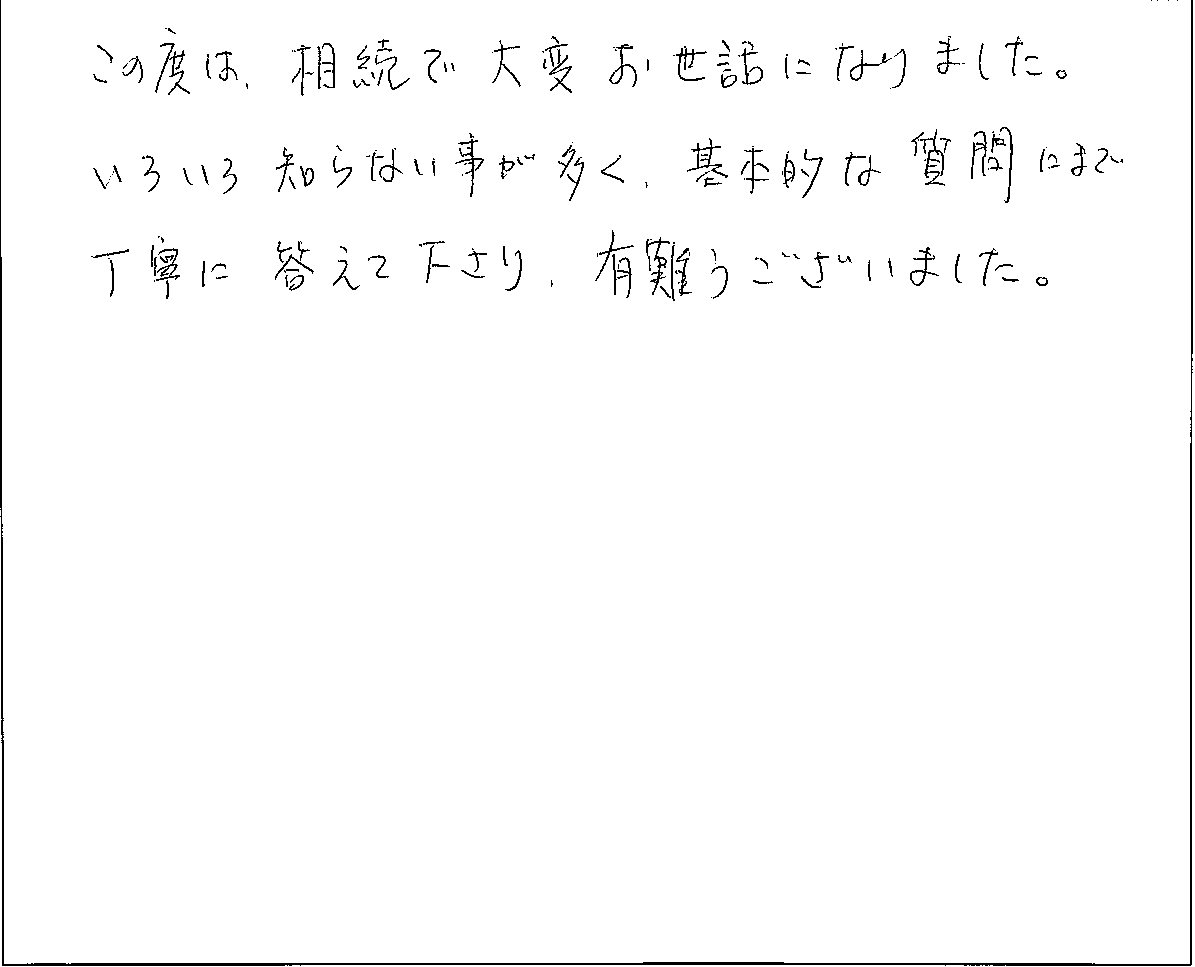 この度は、相続で大変お世話になりました。
いろいろ知らない事が多く、基本的な質問にまで
丁寧に答えて下さり、有難うございました。